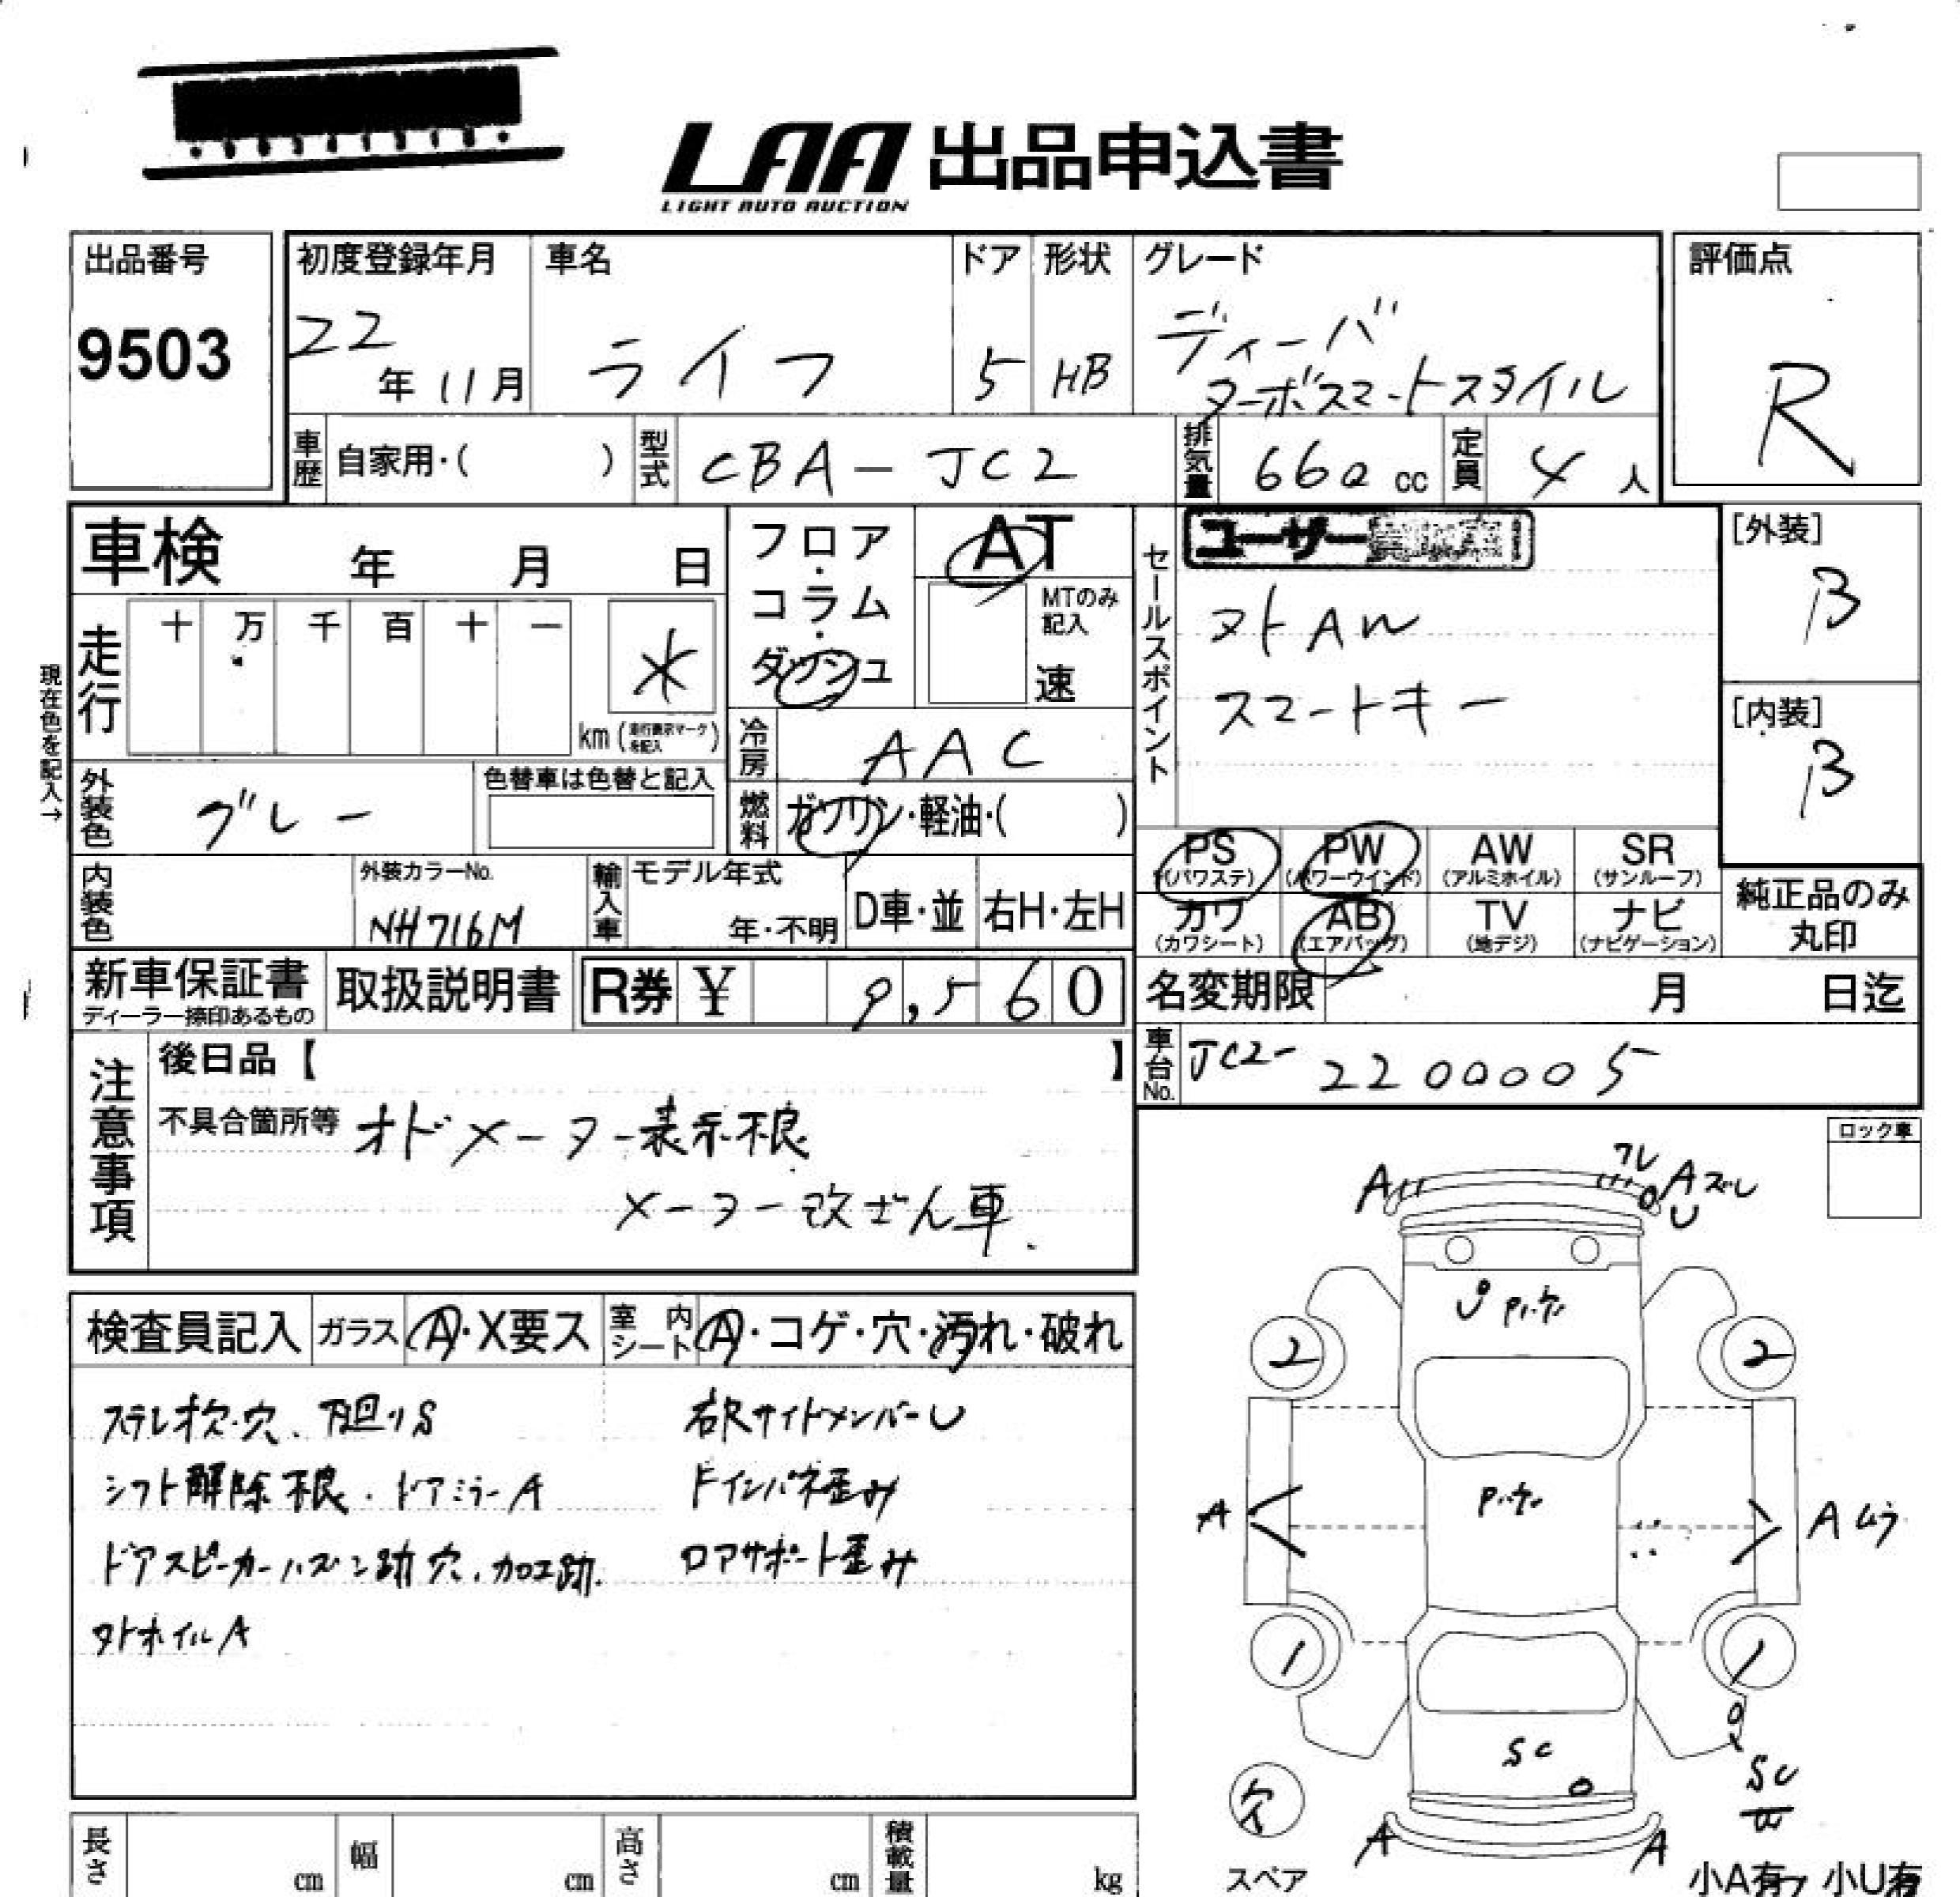 LAA 出品申込書
LIGHT AUTO AUCTION
出品番号
9503
初度登録年月
22
年 11月
車名
ライフ
ドア
5
形状
HB
グレード
ディーバ
ターボスマートスタイル
評価点
R
車歴
自家用・( )
型式
CBA-JC2
排気量
660 cc
定員
4 人
車検 年 月 日
走行
十 万 千 百 十 一
*
km
現在色を記入→
フロア・
コラム・
ダッシュ
AT
MTのみ
記入
速
冷房
AAC
燃料
ガソリン・軽油・( )
外装色
グレー
色替車は色替と記入
内装色
外装カラーNo.
NH716M
輸入車
モデル年式
年・不明
D車・並
右H・左H
セールスポイント
ユーザー
ヌトAW
スマートキー
[外装]
B
[内装]
B
PS
(パワステ)
PW
(パワーウインド)
AW
(アルミホイル)
SR
(サンルーフ)
カワ
(カワシート)
AB
(エアバッグ)
TV
(地デジ)
ナビ
(ナビゲーション)
純正品のみ
丸印
新車保証書
ディーラー捺印あるもの
取扱説明書
R券 ¥ 9,560
名変期限 月 日迄
車台No.
JC2-2200005
注意事項
後日品【 】
不具合箇所等 オドメーター表示不良
メーター改ざん車.
ロック車
検査員記入
ガラス
A・X要ス
室内シート
A・コゲ・穴・汚れ・破れ
ステレオ欠・穴、下廻りS
シフト解除不良・ドアミラーA
ドアスピーカーハズシ跡穴、加工跡.
ヌトホイルA
サイドメンバーU
インパネ歪み
ロアサポート歪み
ワレ
A
A ズレ
U
U
2
2
A
A ムラ
1
1
SU
W
欠
スペア
A
A
小A有 小U有
長さ
cm
幅
cm
高さ
cm
積載量
kg